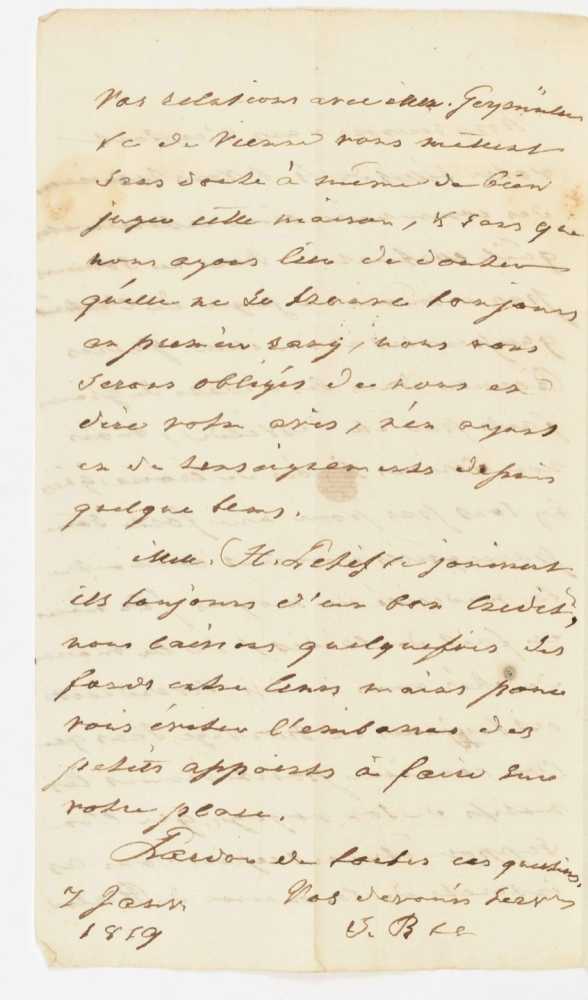 Vos relations avec MM. Geymüller
& Cie de Vienne vous mettent
sans doute à même de bien
juger cette maison, & sans que
nous ayons lieu de douter
qu'elle ne se trouve toujours
en premier rang, nous vous
serons obligés de nous en
dire votre avis, n'en ayant
eu de renseignements depuis
quelque tems.
MM. H. & Cie jouissent
ils toujours d'un bon crédit,
nous laissons quelquefois des
fonds entre leurs mains pour
vous éviter l'embarras des
petits appoints à faire sur
votre place.
Pardon de toutes ces questions,
7 Janv. Vos dévoués serv.
1819 & Cie